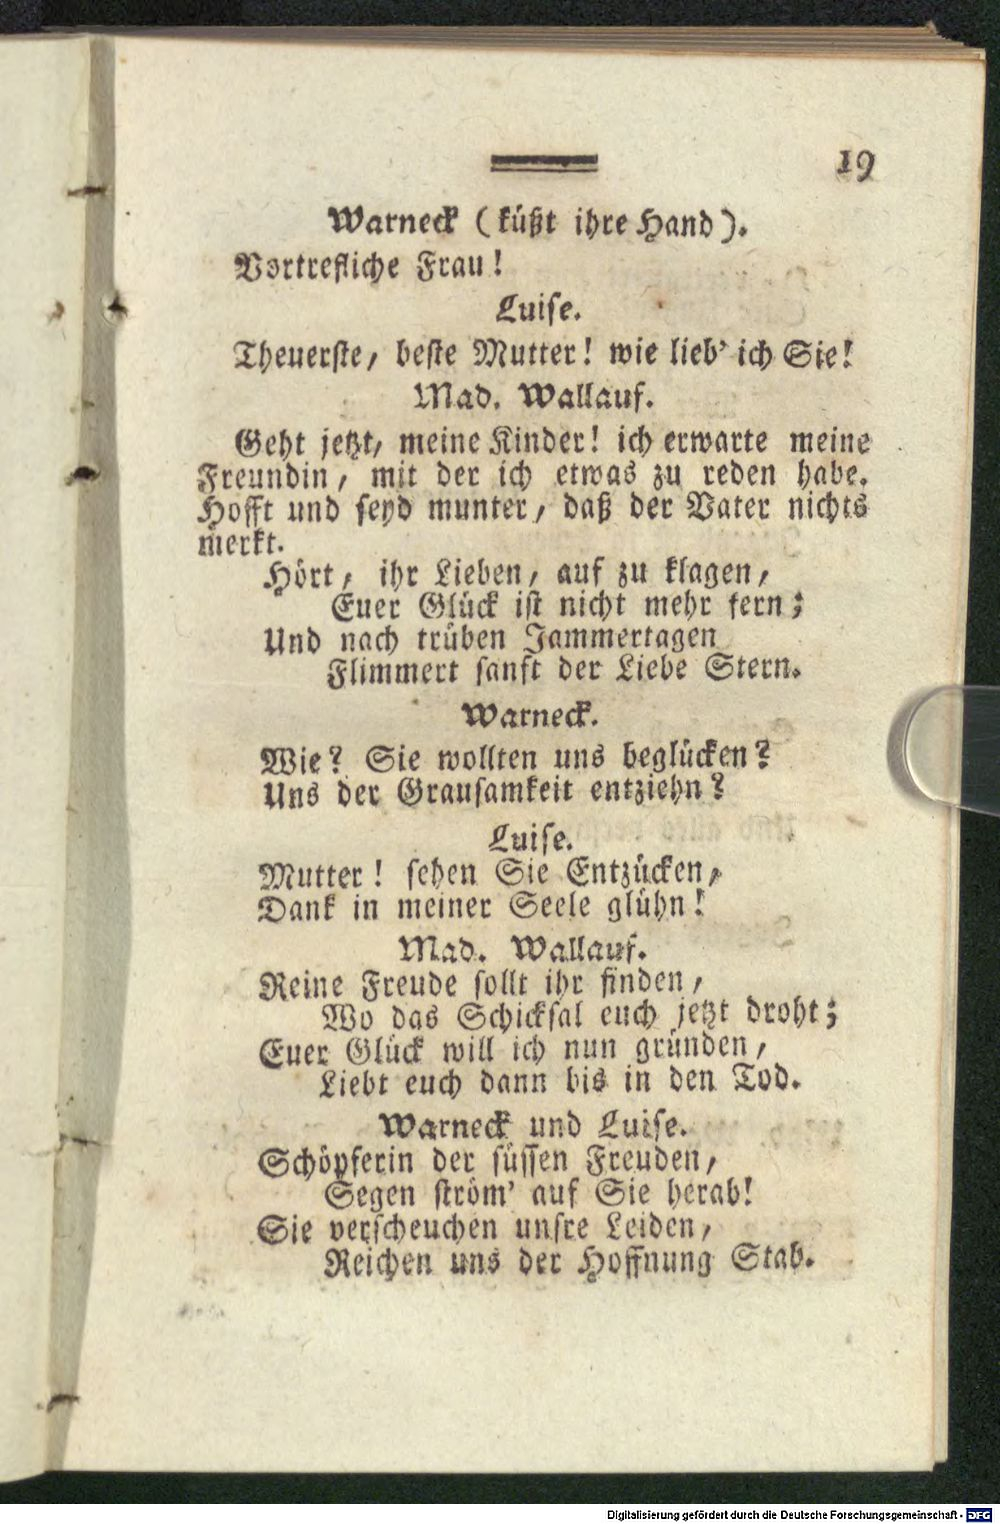 19
Warneck (küßt ihre Hand).
Vortrefliche Frau!
Luise.
Theuerste, beste Mutter! wie lieb' ich Sie!
Mad. Wallauf.
Geht jetzt, meine Kinder! ich erwarte meine
Freundin, mit der ich etwas zu reden habe.
Hofft und seyd munter, daß der Vater nichts
merkt.
Hört, ihr Lieben, auf zu klagen,
Euer Glück ist nicht mehr fern;
Und nach trüben Jammertagen
Flimmert sanft der Liebe Stern.
Warneck.
Wie? Sie wollten uns beglücken?
Uns der Grausamkeit entziehn?
Luise.
Mutter! sehen Sie Entzücken,
Dank in meiner Seele glühn!
Mad. Wallauf.
Reine Freude sollt ihr finden,
Wo das Schicksal euch jetzt droht;
Euer Glück will ich nun gründen,
Liebt euch dann bis in den Tod.
Warneck und Luise.
Schöpferin der süssen Freuden,
Segen ström' auf Sie herab!
Sie verscheuchen unsre Leiden,
Reichen uns der Hoffnung Stab.
Digitalisierung gefördert durch die Deutsche Forschungsgemeinschaft - DFG